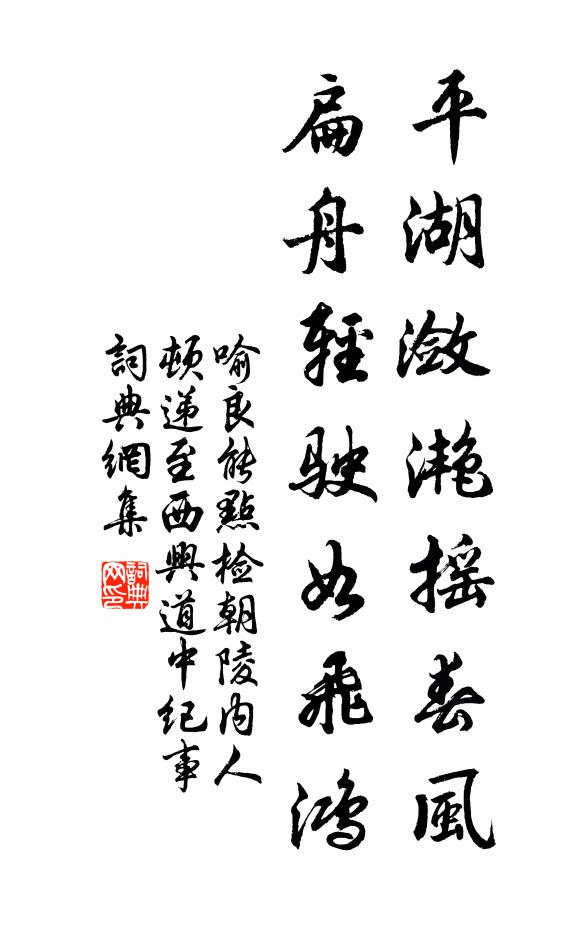 平湖瀲灩摇春風
扁舟輕駛如飛鴻
喻良能點检朝陵内人
頓遞至西興道中纪事
詞典網集
詞典网印